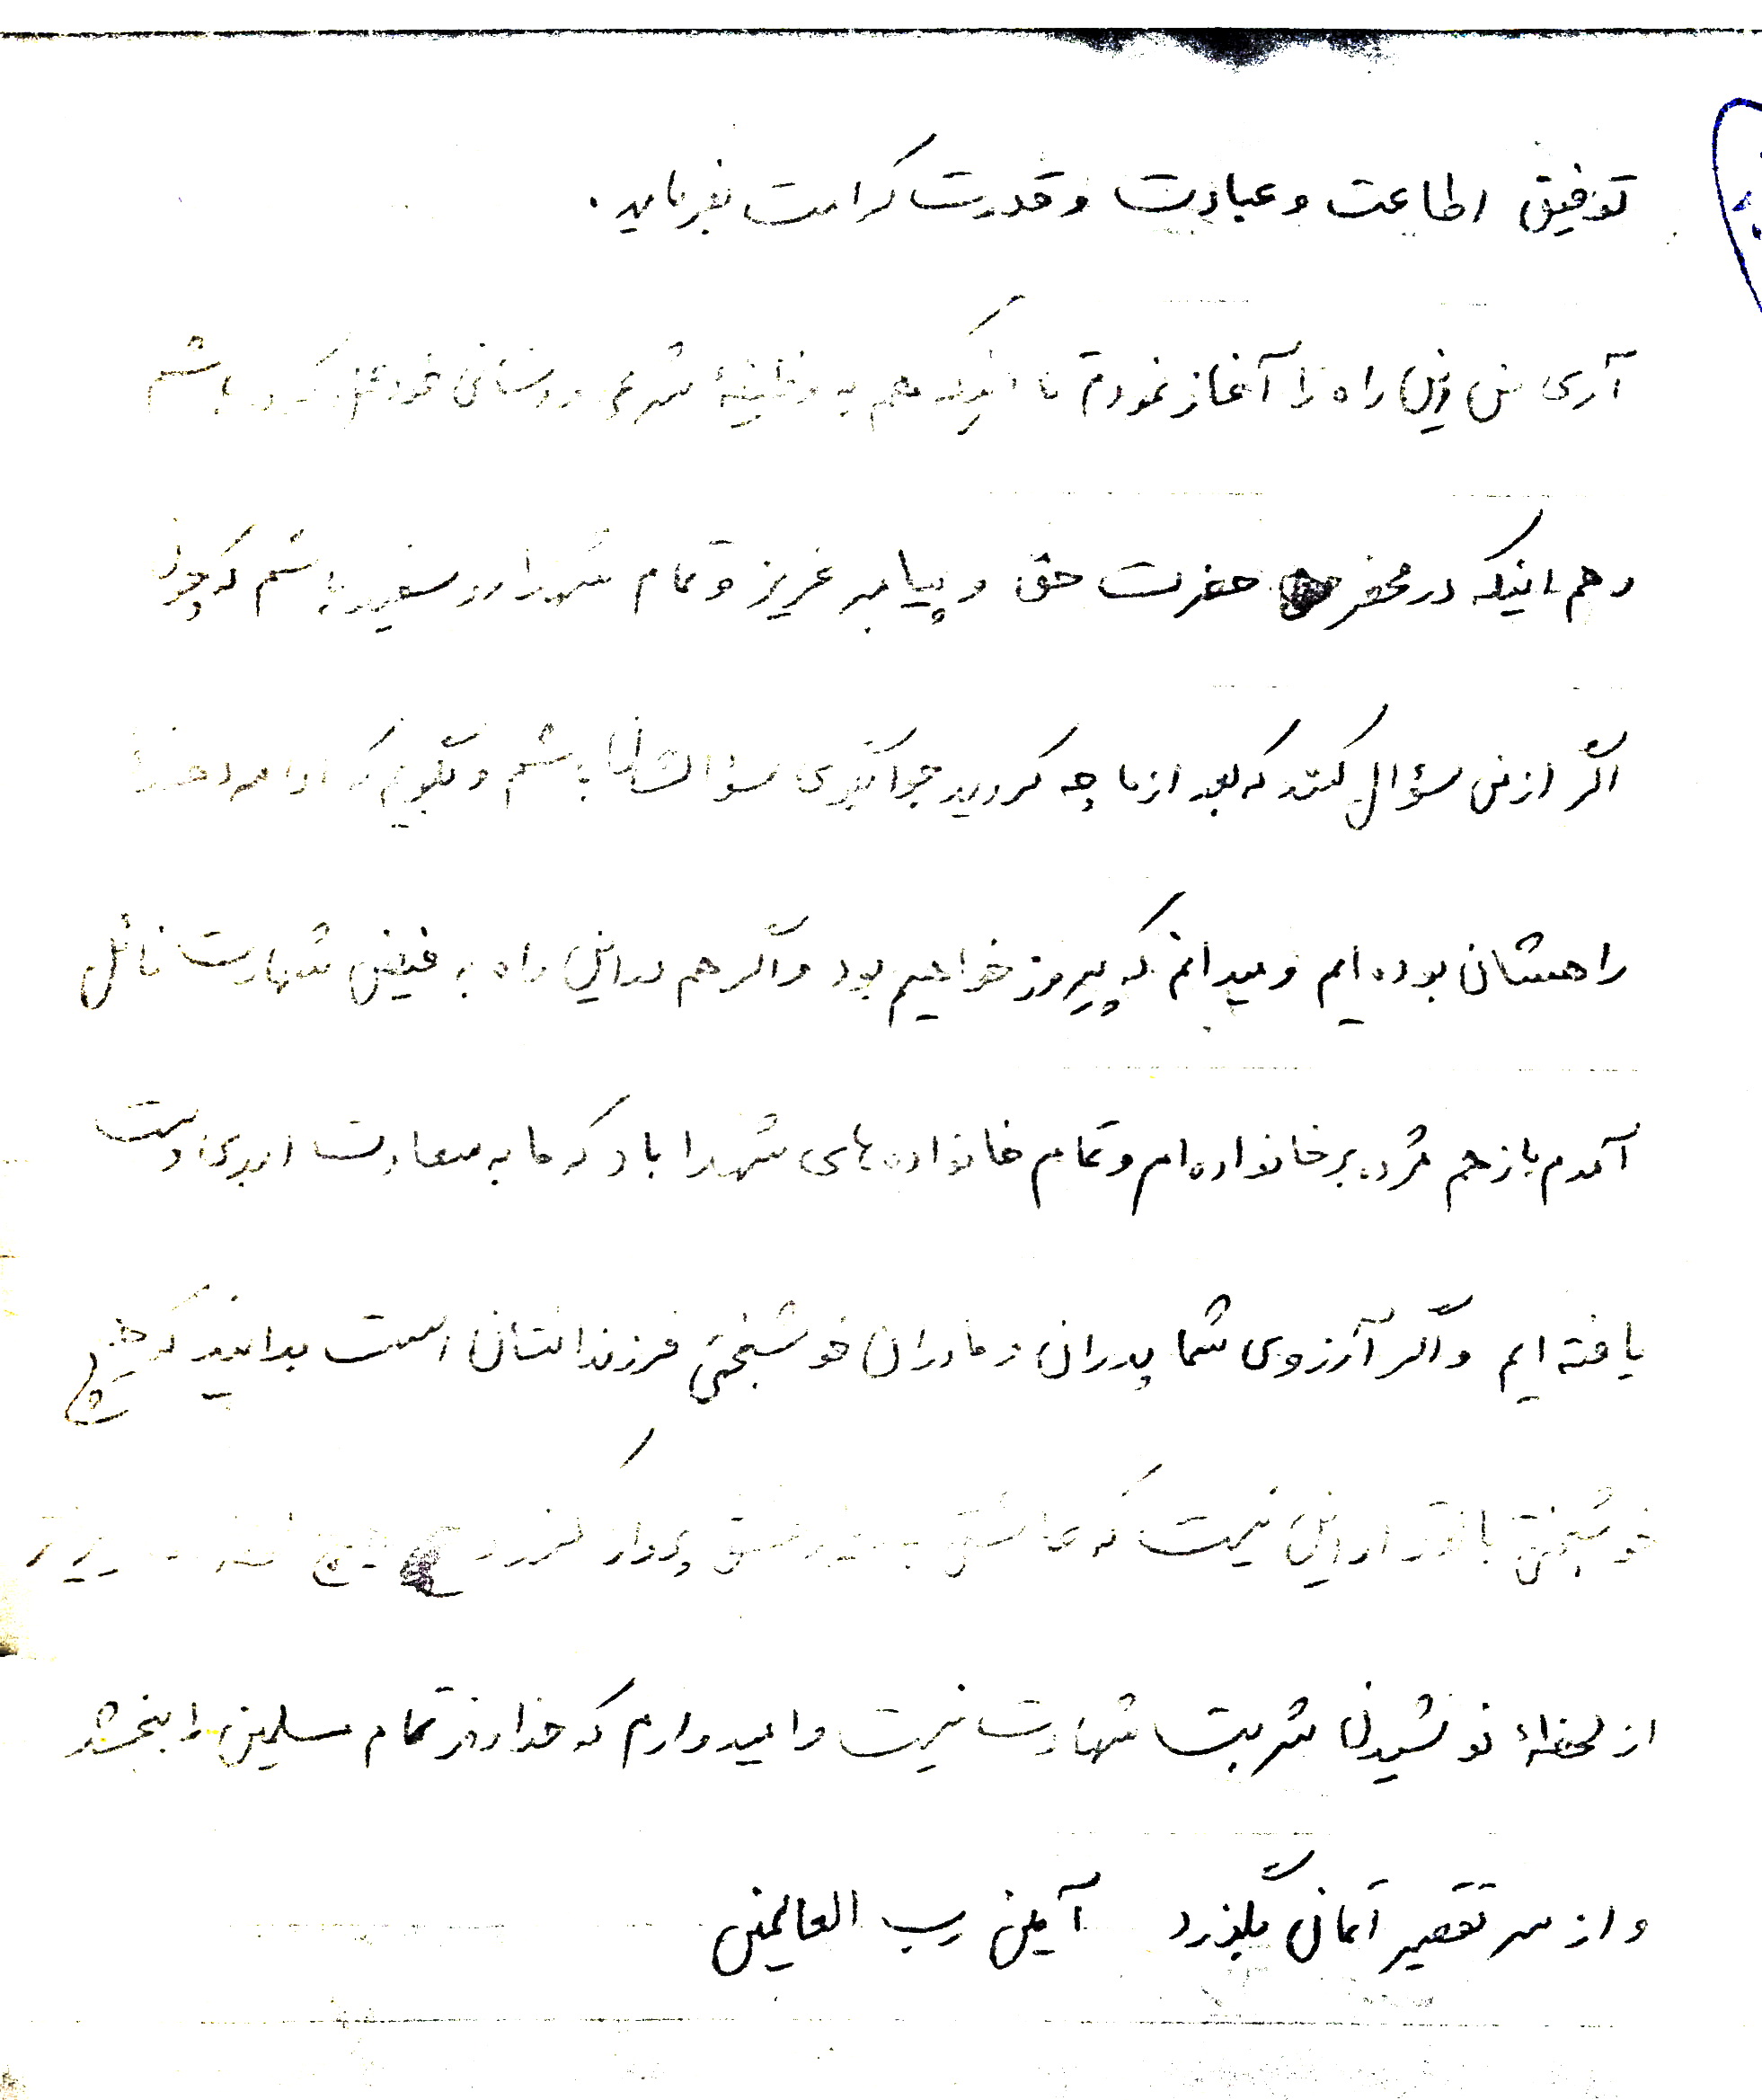 توفیق اطاعت و عبادت و قدرت کرامت بفرماید.
آری من این راه را آغاز نمودم تا اینکه هم به وظیفهٔ شرعی و انسانی خود عمل کرده باشم
و هم اینکه در محضر حضرت حق و پیامبر عزیز و تمام شهدا رو سفید باشم که چون
اگر از من سؤال کنند که بعد از ما چه کردید جوابگوی سؤالشان باشم و بگویم که ادامه دهنده
راهشان بوده ایم و میدانم که پیروز خواهیم بود و اگر هم در این راه به فیض شهادت نائل
آمدم باز هم مژده بر خانواده ام و تمام خانواده های شهدا باد که ما به سعادت ابدی دست
یافته ایم و اگر آرزوی شما پدران و مادران خوشبختی فرزندانتان است بدانید که هیچ
خوشبختی بالاتر از این نیست که عاشق به معشق پرواز کند و هیچ لحظه
از لحظهٔ نوشیدن شربت شهادت نیست و امیدوارم که خداوند تمام مسلمین را ببخشد
و از سر تقصیر آنان بگذرد آمین رب العالمین